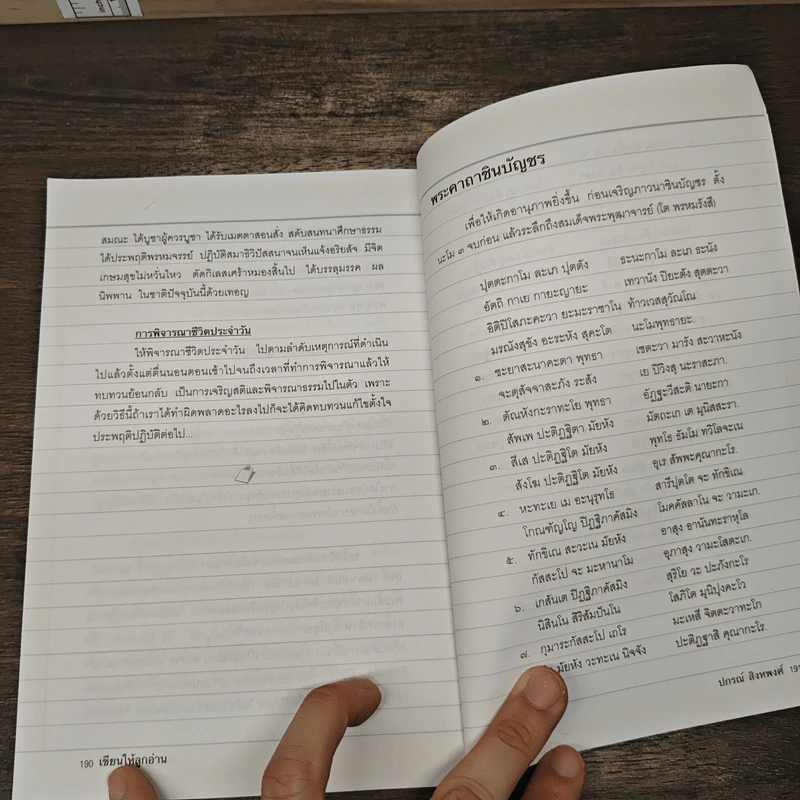 สมณะ ได้บูชาผู้ควรบูชา ได้รับเมตตาสอนสั่ง สดับสนทนาศึกษาธรรม
ได้ประพฤติพรหมจรรย์ ปฏิบัติสมาธิวิปัสสนาจนเห็นแจ้งอริยสัจ มีจิต
เกษมสุขไม่หวั่นไหว ตัดกิเลสเศร้าหมองสิ้นไป ได้บรรลุมรรค ผล
นิพพาน ในชาติปัจจุบันนี้ด้วยเทอญ
การพิจารณาชีวิตประจำวัน
ให้พิจารณาชีวิตประจำวัน ไปตามลำดับเหตุการณ์ที่ดำเนิน
ไปแล้วตั้งแต่ตื่นนอนตอนเช้าไปจนถึงเวลาที่ทำการพิจารณาแล้วให้
ทบทวนย้อนกลับ เป็นการเจริญสติและพิจารณาธรรมไปในตัว เพราะ
ด้วยวิธีนี้ถ้าเราได้ทำผิดพลาดอะไรลงไปก็จะได้คิดทบทวนแก้ไขตั้งใจ
ประพฤติปฏิบัติต่อไป...
190 เขียนให้ลูกอ่าน
พระคาถาชินบัญชร
เพื่อให้เกิดอานุภาพยิ่งขึ้น ก่อนเจริญภาวนาชินบัญชร ตั้ง
นะโม ๓ จบก่อน แล้วระลึกถึงสมเด็จพระพุฒาจารย์ (โต พรหมรังสี)
ปุตตะกาโม ละเภ ปุตตัง ธะนะกาโม ละเภ ธะนัง
อัตถิ กาเย กายะญายะ เทวานัง ปิยะตัง สุตตะวา
อิติปิโสภะคะวา ยะมะราชาโน ท้าวเวสสุวัณโณ
มรณังสุขัง อะระหัง สุคะโต นะโมพุทธายะ.
๑. ชะยาสะนาคะตา พุทธา เชตะวา มารัง สะวาหะนัง
จะตุสัจจาสะภัง ระสัง เย ปิวิงสุ นะราสะภา.
๒. ตัณหังกะราทะโย พุทธา อัฏฐะวีสะติ นายะกา
สัพเพ ปะติฏฐิตา มัยหัง มัตถะเก เต มุนิสสะรา.
๓. สีเส ปะติฏฐิโต มัยหัง พุทโธ ธัมโม ทวิโลจะเน
สังโฆ ปะติฏฐิโต มัยหัง อุเร สัพพะคุณากะโร.
๔. หะทะเย เม อะนุรุทโธ สารีปุตโต จะ ทักขิเณ
โกณฑัญโญ ปิฏฐิภาคัสมิง โมคคัลลาโน จะ วามะเก.
๕. ทักขิเณ สะวะเน มัยหัง อาสุง อานันทะราหุโล
กัสสะโป จะ มะหานาโม อุภาสุง วามะโสตะเก.
๖. เกสันเต ปิฏฐิภาคัสมิง สุริโย วะ ปะภังกะโร
นิสินโน สิริสัมปันโน โสภิโต มุนิปุงคะโว
๗. กุมาระกัสสะโป เถโร มะเหสี จิตตะวาทะโก
มัยหัง วะทะเน นิจจัง ปะติฏฐาสิ คุณากะโร.
ปกรณ์ สิงหพงศ์ 191